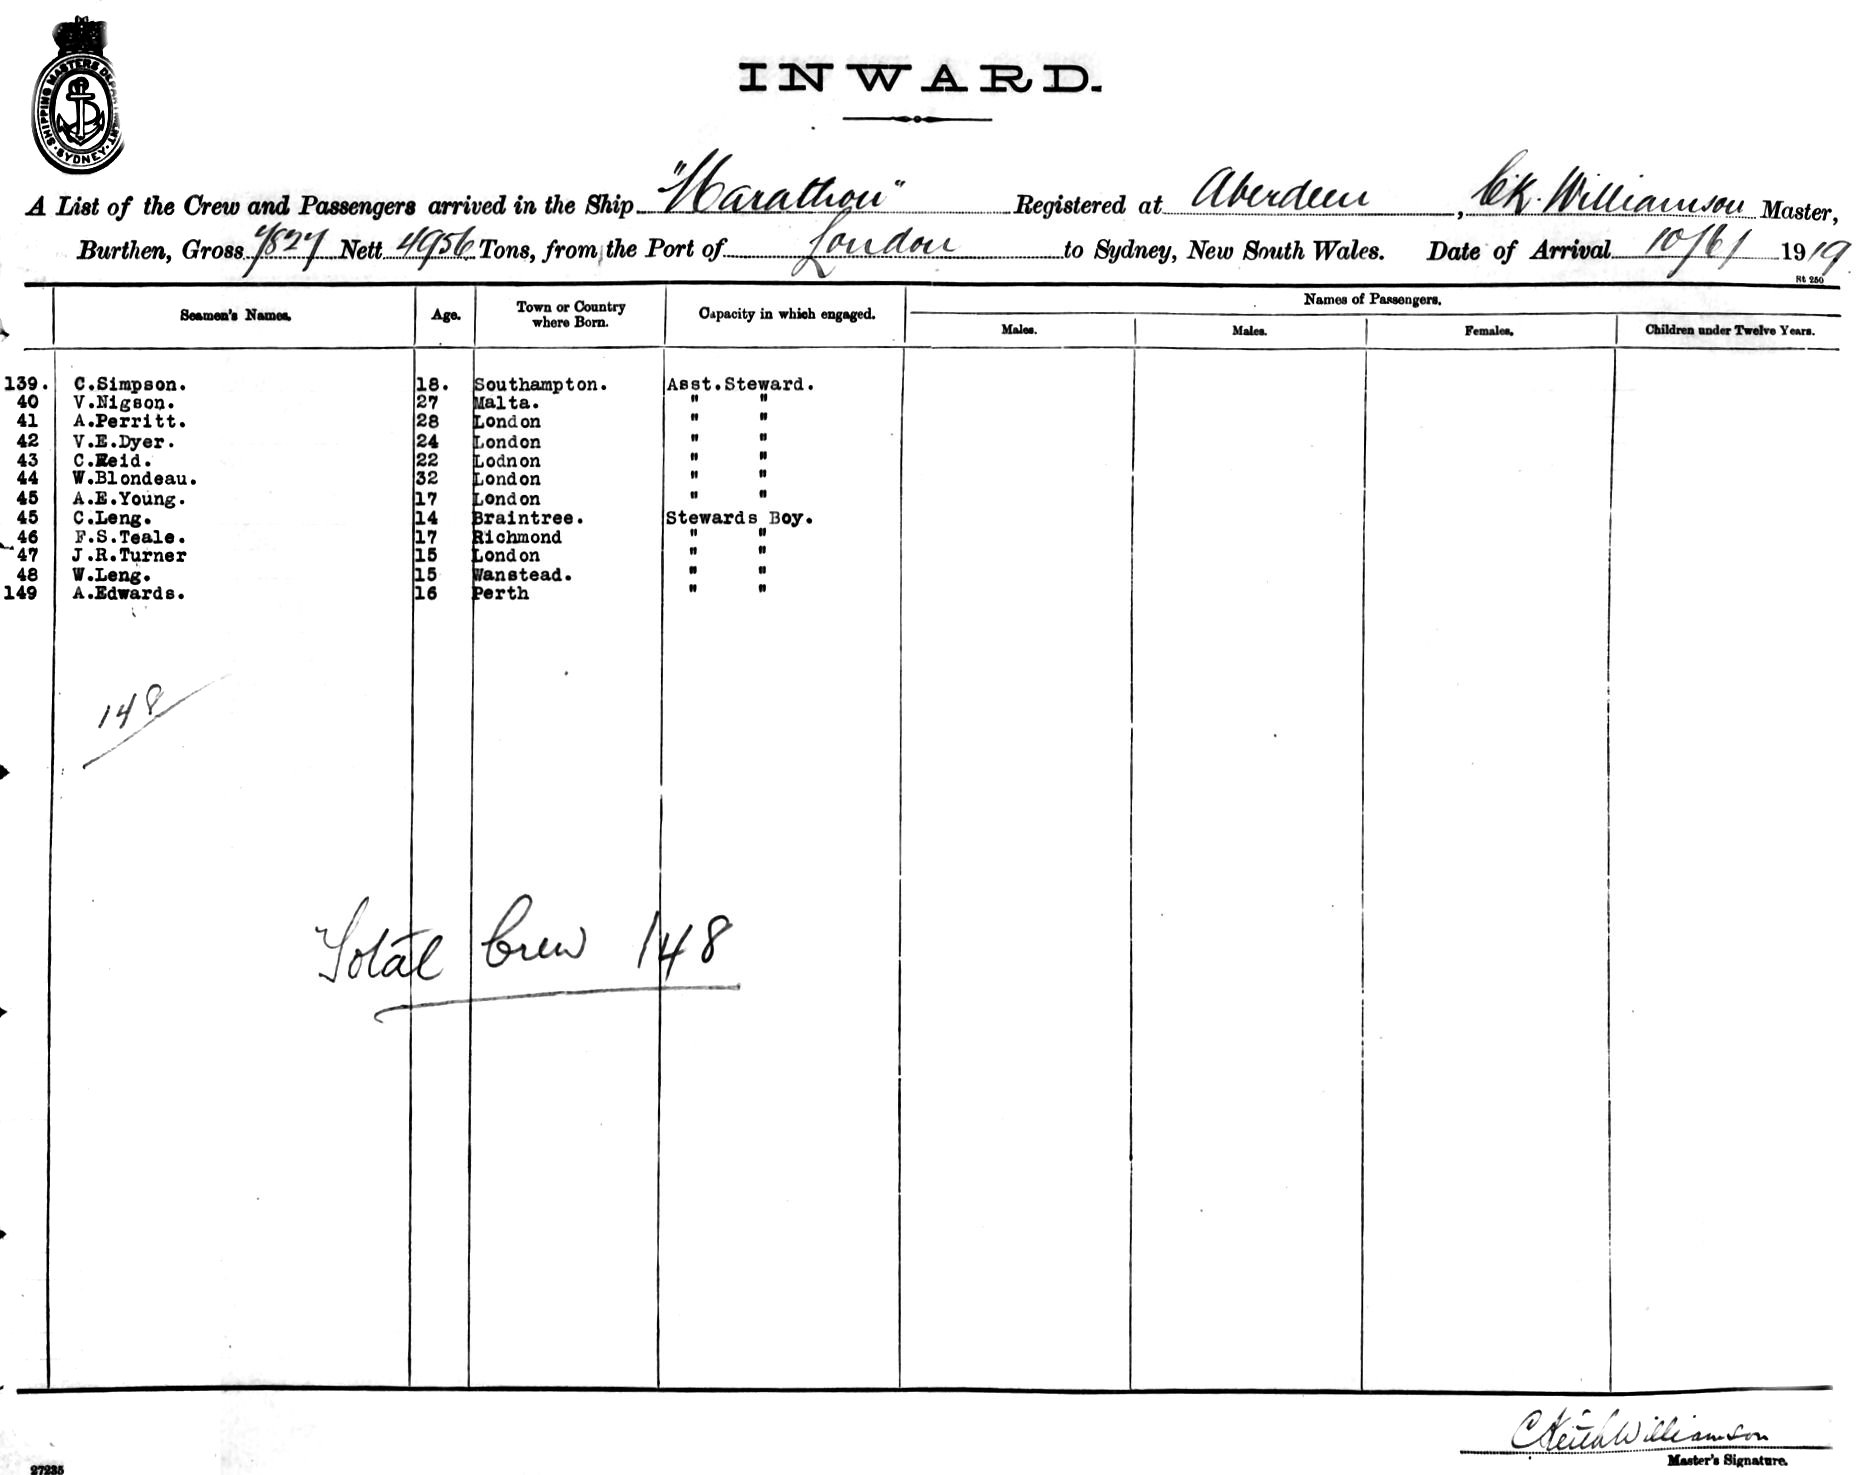 SHIPPING MASTERS DEPARTMENT. SYDNEY.
INWARD.
A List of the Crew and Passengers arrived in the Ship "Marathon" Registered at Aberdeen, CK. Williamson Master,
Burthen, Gross 7827 Nett 4956 Tons, from the Port of London to Sydney, New South Wales. Date of Arrival 10/6/ 1919
St 250
Seamen's Names. Age. Town or Country where Born. Capacity in which engaged. Names of Passengers.
Males. Males. Females. Children under Twelve Years.
139. C.Simpson. 18. Southampton. Asst.Steward.
40 V.Nigson. 27 Malta. " "
41 A.Perritt. 28 London " "
42 V.E.Dyer. 24 London " "
43 C.Reid. 22 Lodnon " "
44 W.Blondeau. 32 London " "
45 A.E.Young. 17 London " "
45 C.Leng. 14 Braintree. Stewards Boy.
46 F.S.Teale. 17 Richmond " "
47 J.R.Turner 15 London " "
48 W.Leng. 15 Wanstead. " "
149 A.Edwards. 16 Perth " "
148
Total Crew 148
C Keith Williamson
Master's Signature.
27235